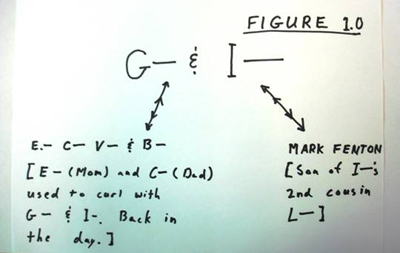 FIGURE 1.0
G— & I—
E.— C— V— & B—
[E— (Mom) and C— (Dad)
used to curl with
G— & I—. Back in
the day.]
MARK FENTON
[Son of I—'s
2nd cousin
L—]